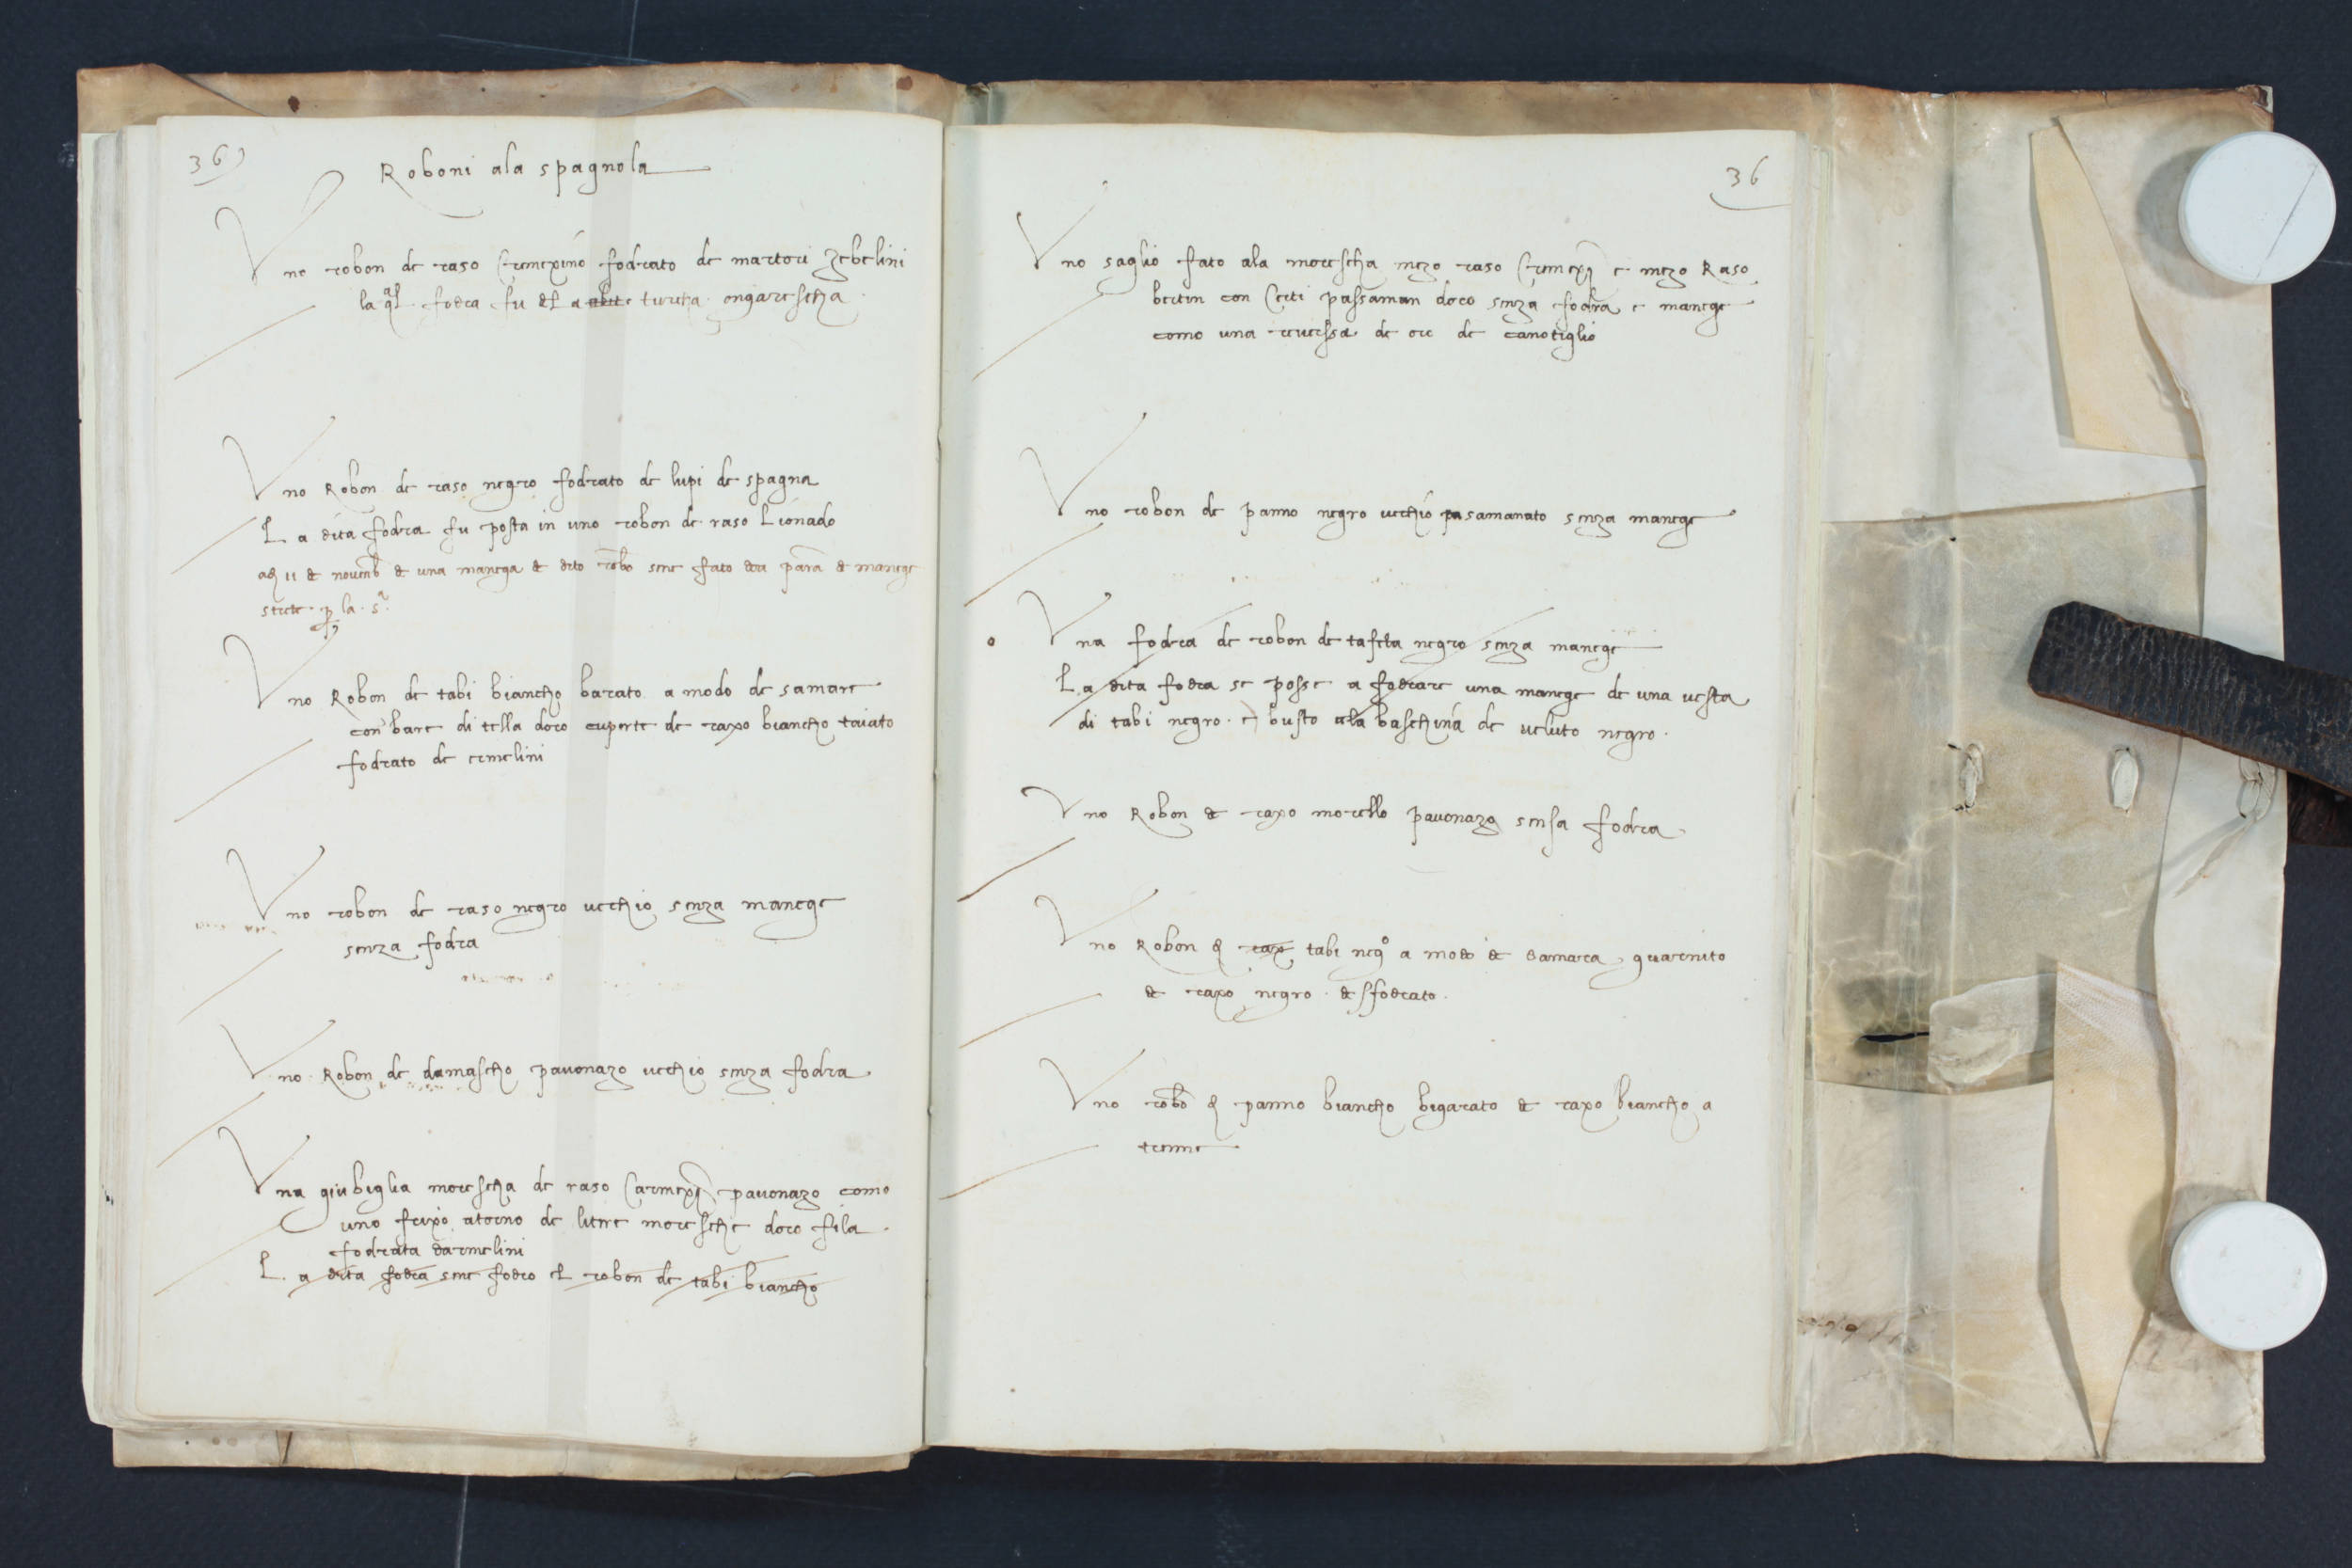 36
Roboni ala spagnola
Vno robon de raso Cremexino fodrato de martori zebelini
la qal fodra fu d'l a turcha ongarescha
Vno Robon de raso negro fodrato de lupi de spagna
La dita fodra fu posta in uno robon de raso Lionado
adj 11 de novemb de una manega de dito robo sene fato dui para de manege
strete p la sa
Vno Robon de tabi biancho barato a modo de samare
con bare di tella doro cuperte de raxo biancho taiato
fodrato de ermelini
Vno robon de raso negro vechio senza manege
senza fodra
Vno Robon de damascho pavonazo vechio senza fodra
Vna giubiglia morescha de raso Carmexj pavonazo como
uno frixo atorno de litere moresche doro fila
fodrata darmelini
La dita fodra sene fodro el robon de tabi biancho
36
Vno saglio fato ala morescha mezo raso Cremexj e mezo Raso
bertin con Certi passaman doro senza fodra e manege
como una reversa de ore de canotiglio
Vno robon de panno negro vechio pasamanato senza manege
Vna fodra de robon de tafeta negro senza manege
La dita fodra se posse a fodrare una manege de una vesta
di tabi negro e busto ala baschina de veluto negro
Vno Robon de raxo morello pavonazo sensa fodra
Vno Robon d rax tabi nego a modo de damara guarnito
de raxo negro desfodrato
Vno robo d panno biancho bigarato de raxo biancho a
treme